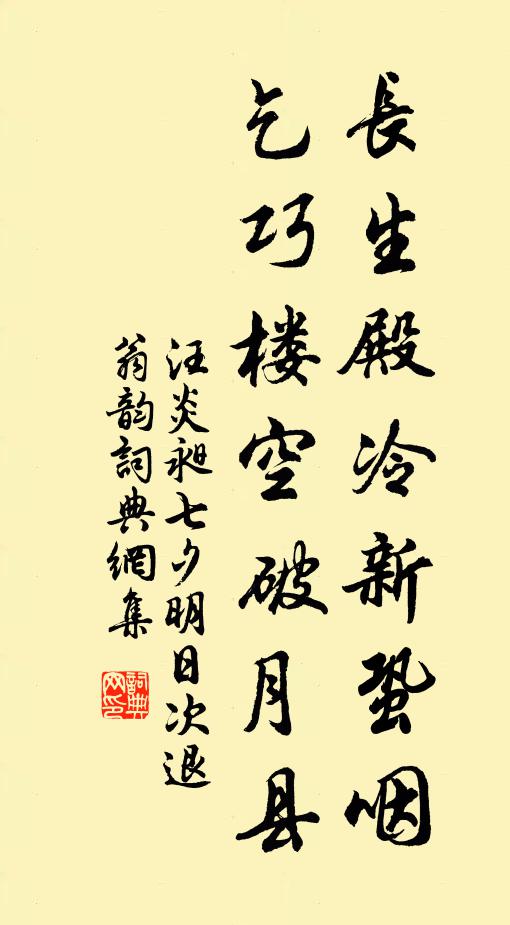 長生殿冷新蛩咽
乞巧楼空破月县
汪炎昶七夕明日次退
翁韵詞典網集
詞典网印